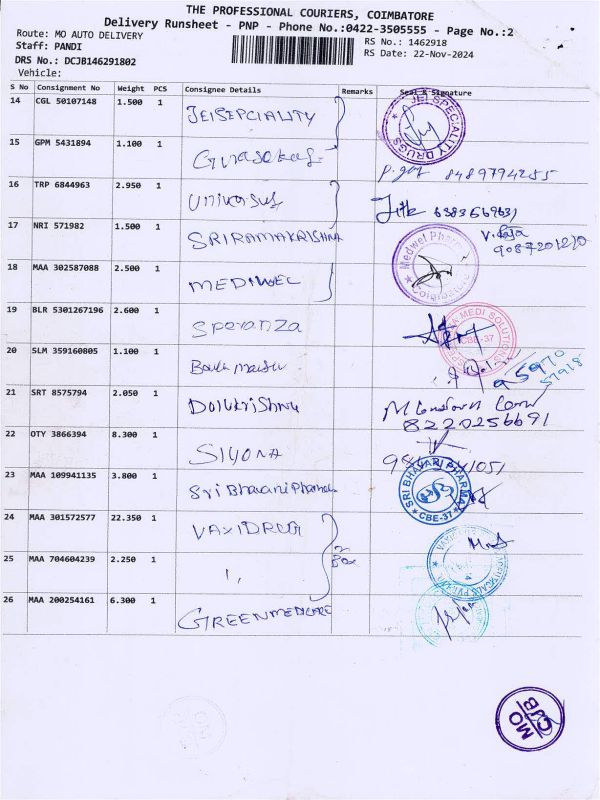 THE PROFESSIONAL COURIERS, COIMBATORE
Delivery Runsheet - PNP - Phone No.:0422-3505555 - Page No.:2
Route: MO AUTO DELIVERY
RS No.: 1462918
Staff: PANDI
RS Date: 22-Nov-2024
DRS No.: DCJB146291802
Vehicle:
S No Consignment No Weight PCS Consignee Details Remarks Seal & Signature
14 CGL 50107148 1.500 1 JEISEPCIALITY JEI SPECIALITY DRUGS
15 GPM 5431894 1.100 1 8489794255
16 TRP 6844963 2.950 1 Universus 6383569631
17 NRI 571982 1.500 1 SRIRAMAKRISHNA V. Raja
9087201220
18 MAA 302587088 2.500 1 MEDIWEL Medwel Pharma Coimbatore
19 BLR 5301267196 2.600 1 Speranza SPERANZA MEDI SOLUTIONS CBE-37
20 SLM 359160805 1.100 1 95970
57918
21 SRT 8575794 2.050 1
8220256691
22 OTY 3866394 8.300 1 SIYONA
23 MAA 109941135 3.800 1 Sri Bhavani Pharma SRI BHAVARI PHARMA CBE-37
24 MAA 301572577 22.350 1 VAXIDRUG 2 Box
25 MAA 704604239 2.250 1 ''
26 MAA 200254161 6.300 1 GREENMEDICARE
MO
CJB